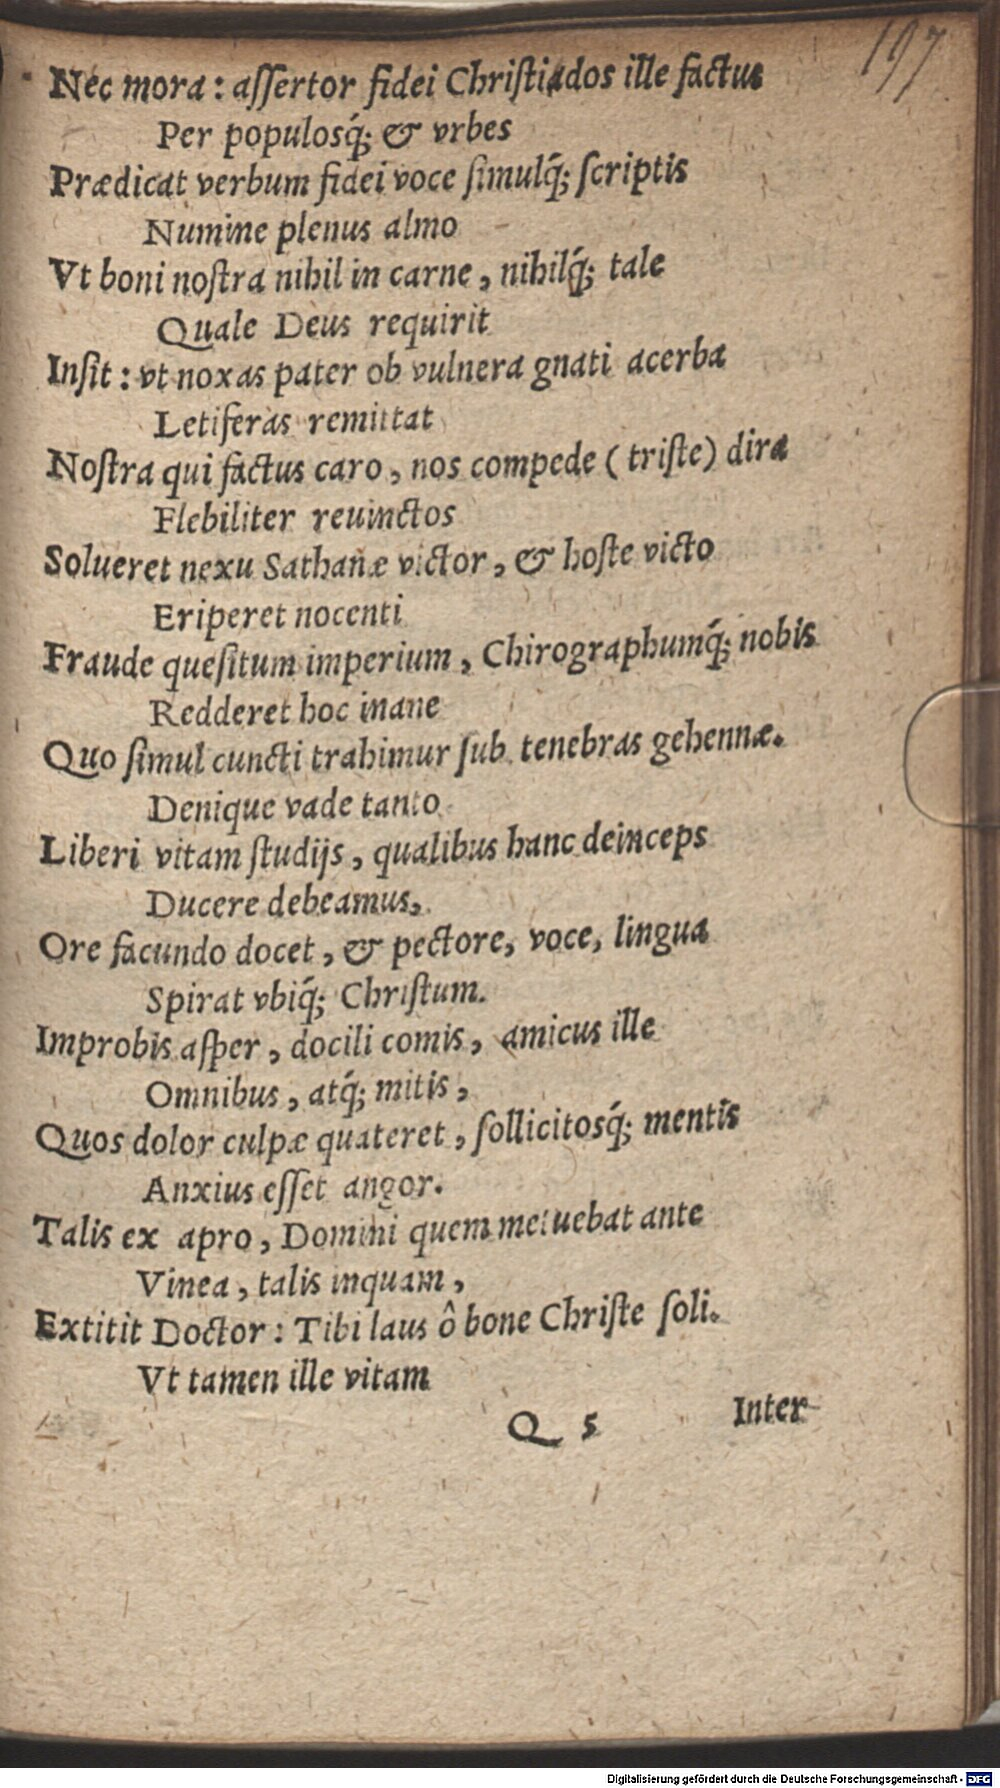 197
Nec mora : aſſertor fidei Chriſtiados ille factus
Per populosq́; & vrbes
Prædicat verbum fidei voce ſimulq́; ſcriptis
Numine plenus almo
Vt boni noſtra nihil in carne , nihilq́; tale
Quale Deus requirit
Inſit : vt noxas pater ob vulnera gnati acerba
Letiferas remittat
Noſtra qui factus caro , nos compede ( triſte) dira
Flebiliter reuinctos
Solueret nexu Sathanæ victor , & hoſte victo
Eriperet nocenti
Fraude queſitum imperium , Chirographumq́; nobis
Redderet hoc inane
Quo ſimul cuncti trahimur ſub tenebras gehennæ.
Denique vade tanto
Liberi vitam ſtudijs , qualibus hanc deinceps
Ducere debeamus,
Ore facundo docet , & pectore, voce, lingua
Spirat vbiq́; Chriſtum.
Improbis aſper , docili comis , amicus ille
Omnibus , atq́; mitis ,
Quos dolor culpæ quateret , ſollicitosq́; mentis
Anxius eſſet angor.
Talis ex apro , Domini quem metuebat ante
Vinea , talis inquam ,
Extitit Doctor : Tibi laus ô bone Chriſte ſoli.
Vt tamen ille vitam
Q 5 Inter
Digitalisierung gefördert durch die Deutsche Forschungsgemeinschaft - DFG